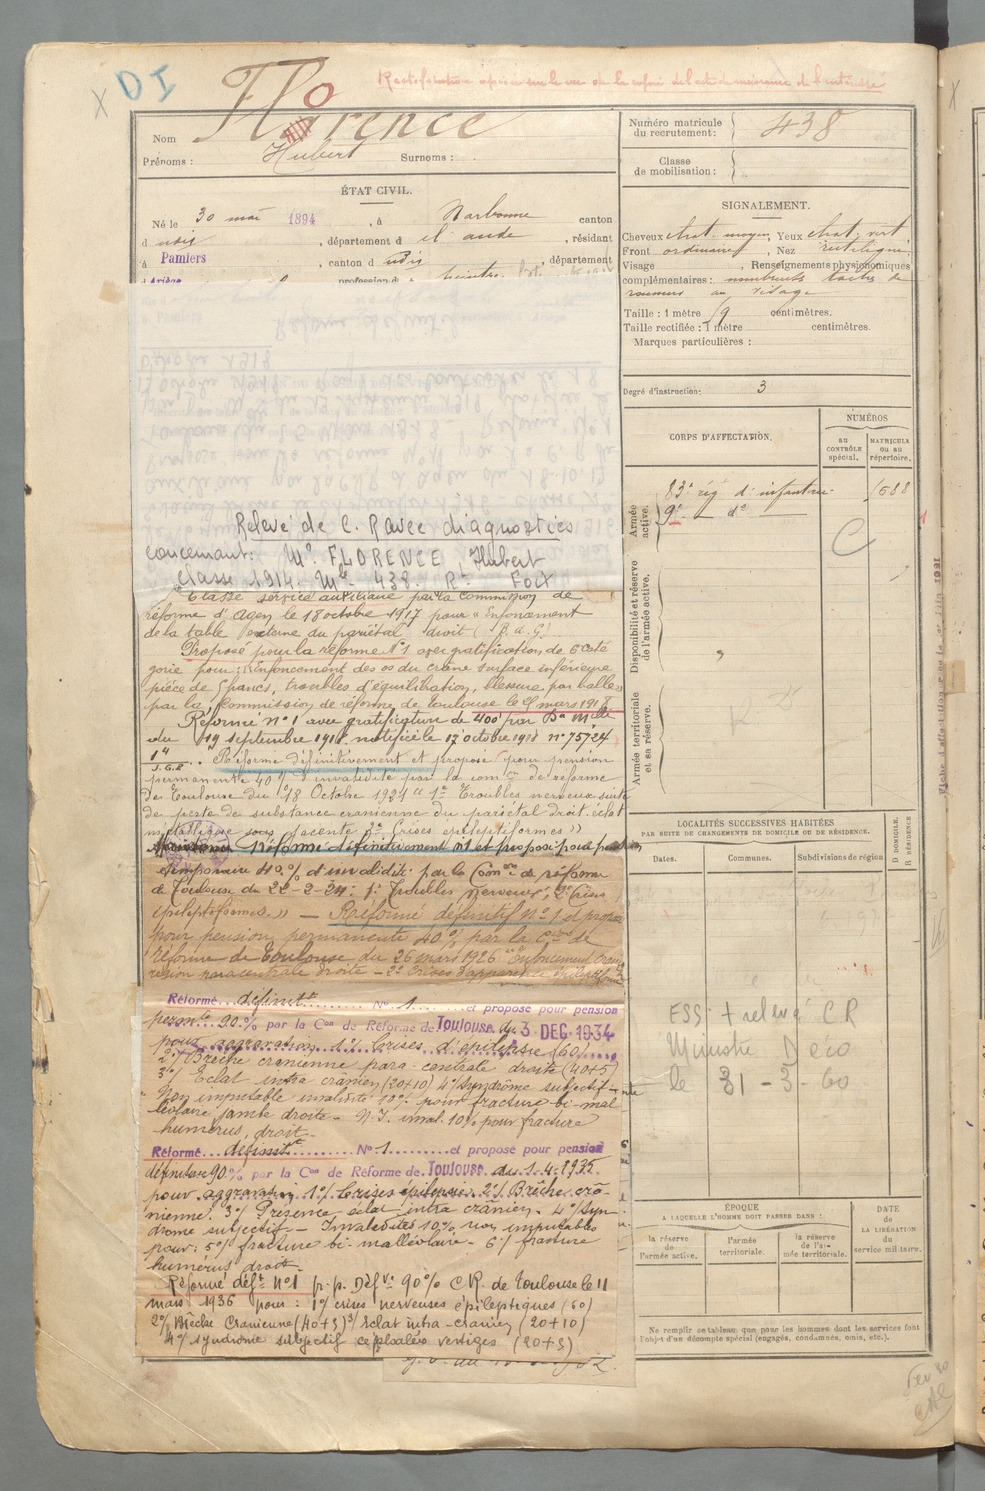 D I
Rectification opérée sur le vu de la copie de l'acte de naissance de l'intéressé
Nom Florence
Prénoms : Hubert Surnoms :
ÉTAT CIVIL.
Né le 30 mai 1894, à Narbonne canton
d udis, département d e l'aude, résidant
à Pamiers, canton d udis, département
d Ariège profession d
Numéro matricule du recrutement : 438
Classe de mobilisation :
SIGNALEMENT.
Cheveux chat. moyen, Yeux chat. vert
Front ordinaire, Nez rectiligne
Visage , Renseignements physionomiques
complémentaires : nombreuses taches de
rousseur au visage
Taille : 1 mètre centimètres.
Taille rectifiée : 1 mètre centimètres.
Marques particulières :
Degré d'instruction : 3
CORPS D'AFFECTATION.
NUMÉROS
AU CONTRÔLE spécial.
MATRICULE OU AU répertoire.
Armée active.
83e rég. d'infanterie 1588
9e — do —
C
Disponibilité et réserve de l'armée active.
Armée territoriale et sa réserve.
Relevé de C. R avec diagnostics
concernant : Mr. FLORENCE, Hubert
classe 1914. Mle 438. Rt Foix
Classé service auxiliaire par la commission de
réforme d'Agen le 18 octobre 1917 pour « Enfoncement
de la table externe du pariétal droit (B. a. G.)
Proposé pour la réforme N°1 avec gratification de 6e caté
gorie pour : « Enfoncement des os du crâne surface inférieure
pièce de 5 francs, troubles d'équilibration, blessure par balle »
par la Commission de réforme de Toulouse le 9 mars 1918
Réformé n°1 avec gratification de 400f par Don Mlle
du 19 septembre 1918 notifié le 17 octobre 1918 n° 75724
Réformé définitivement et proposé pour pension
permanente 40% d'invalidité par la comon de réforme
de Toulouse du 18 Octobre 1921 « 1° Troubles nerveux suite
de perte de substance cranienne du pariétal droit éclat
métallique sous jacente 2° Crises épileptiformes »
Réformé définitivement n°1 et proposé pour pension
temporaire 40% d'invalidité par la Comon de réforme
de Toulouse du 22-2-24 : 1° Troubles nerveux, 2° Crises
épileptiformes » — Réformé définitif N°1 et proposé
pour pension permanente 40% par la Cion de
réforme de Toulouse du 26 mars 1926 « enfoncement crane
région paracentrale droite - 2° Crises d'apparence épileptiforme
Réformé définitt N° 1 et proposé pour pension
permte 90% par la Con de Réforme de Toulouse du 3 DEC 1934
pour aggravation 1°/ Crises d'épilepsie (60)
2°/ Brèche cranienne para centrale droite (40+5)
3°/ Eclat intra crânien (20+10) 4°/ Syndrôme subjectif
Non imputable invalidité 10% pour fracture bi-mal
léolaire jambe droite - N.I. inval. 10% pour fracture
humérus droit.
Réformé définitt N° 1 et proposé pour pension
définitive 90% par la Con de Réforme de Toulouse du 1.4.1935
pour aggravation 1°/ Crises épilepsie 2°/ Brêche crâ-
nienne. 3°/ Présence éclat intra crânien - 4°/ Syn
drome subjectif - Invalidités 10% non imputables
pour : 5°/ fracture bi-malléolaire - 6°/ fracture
humérus droit
Réformé défit n°1 p.p. Défve 90% C.R. de Toulouse le 11
mars 1936 pour : 1°/ crises nerveuses épileptiques (60)
2°/ Brèche Cranienne (40+5) 3°/ Eclat intra-cranien (20+10)
4°/ syndrome subjectif céphalées vertiges (20+5)
LOCALITÉS SUCCESSIVES HABITÉES
PAR SUITE DE CHANGEMENTS DE DOMICILE OU DE RÉSIDENCE.
Dates.
Communes.
Subdivisions de région.
D DOMICILE.
R RÉSIDENCE
ESS + relevé CR
Ministre Déco
le 31 - 3 - 60
ÉPOQUE
A LAQUELLE L'HOMME DOIT PASSER DANS :
la réserve de l'armée active.
l'armée territoriale.
la réserve de l'armée territoriale.
DATE de LA LIBÉRATION du service militaire.
Ne remplir ce tableau que pour les hommes dont les services font
l'objet d'un décompte spécial (engagés, condamnés, omis, etc.).